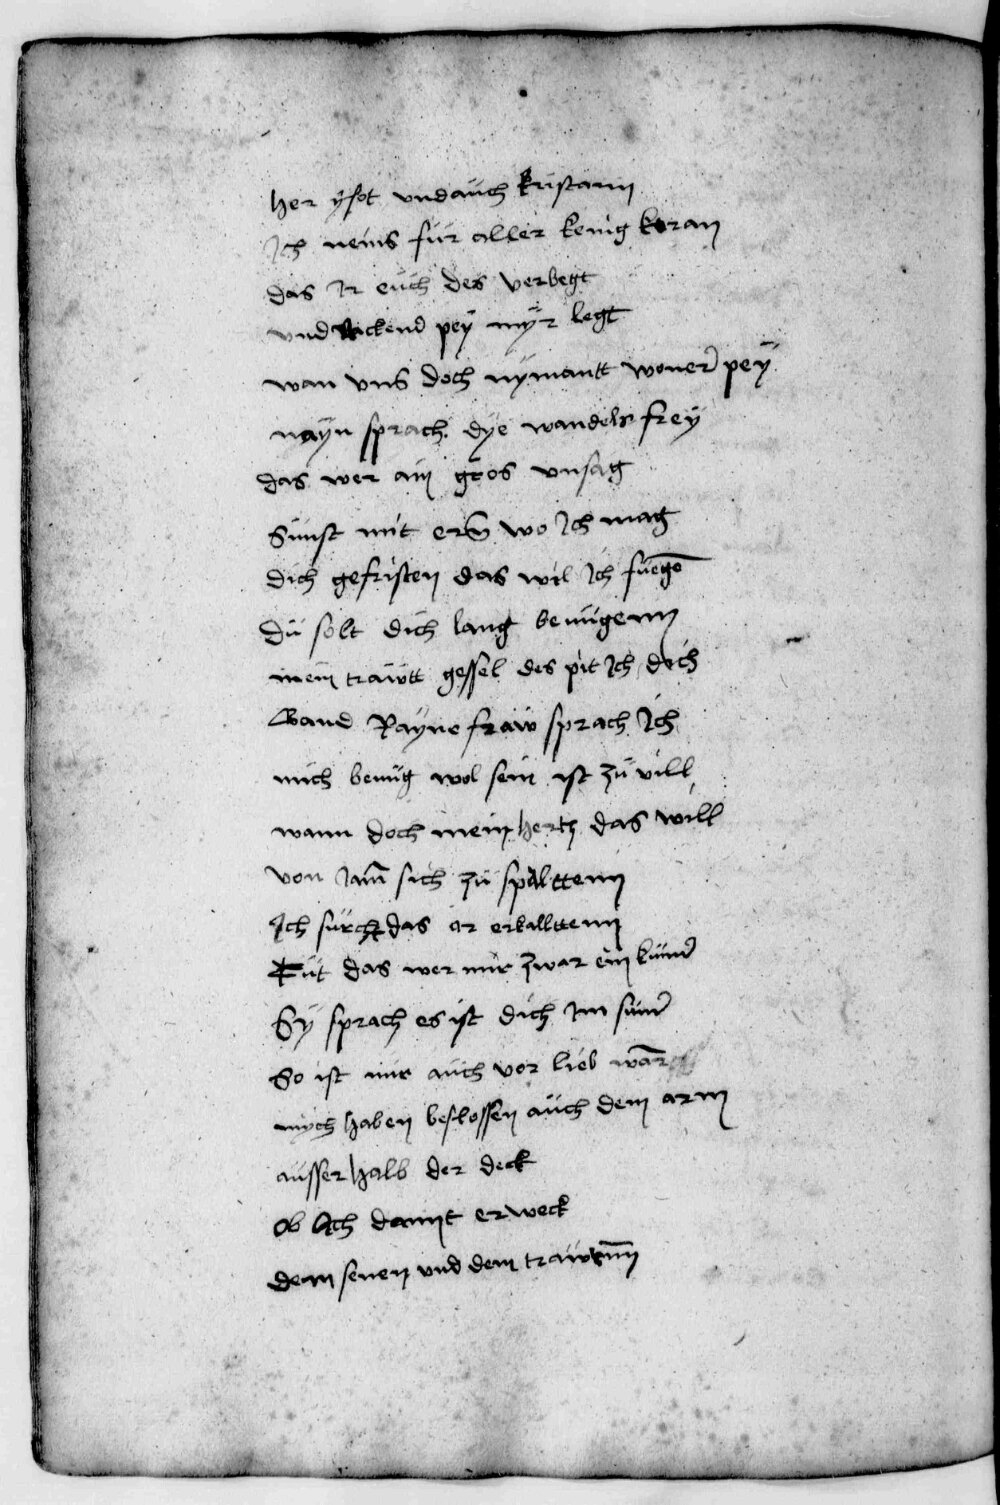 her ysot vnd auch kristann
Ich neins für aller kenig kran
das Ir euch des verbegt
vnd nackend pey myr legt
wan vns doch nymantt woner pey
nayn sprach dye wandels frey
das wer ain gros vnsag
Sunst mit ern wo Ich mag
dich gefristen das wil Ich fuegen
du solt dich lang benugenn
mein trawtt gessel des pit Ich dich
Rayne fraw sprach Ich
mich benug wol sein ist zu vill
wann doch mein hertz das will
von Iam sich zu spalttenn
Ich furcht das er erkallttenn
Tut das wer mir zwar ein kumer
Sy sprach es ist dich Im sumer
So ist mir auch vor lieb warm
mych haben beslossen auch dein arm
ausserhalb der deck
ob Ich damit erweck
dein senen vnd dein trawrenn